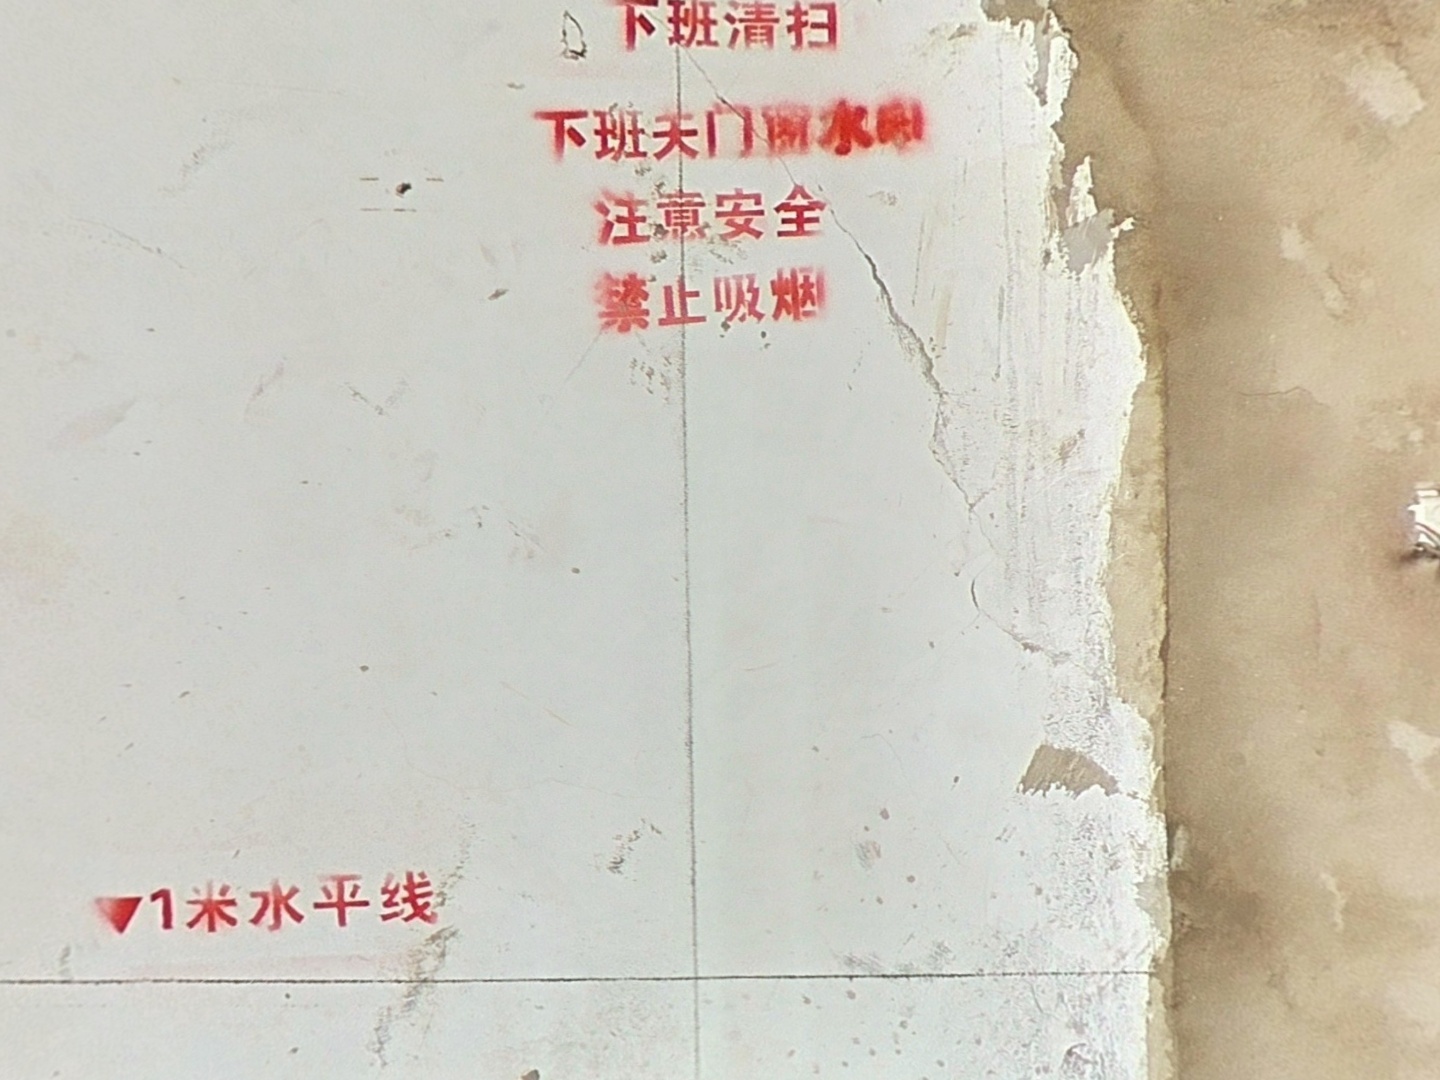 下班清扫
下班关门断水电
注意安全
禁止吸烟
▼1米水平线